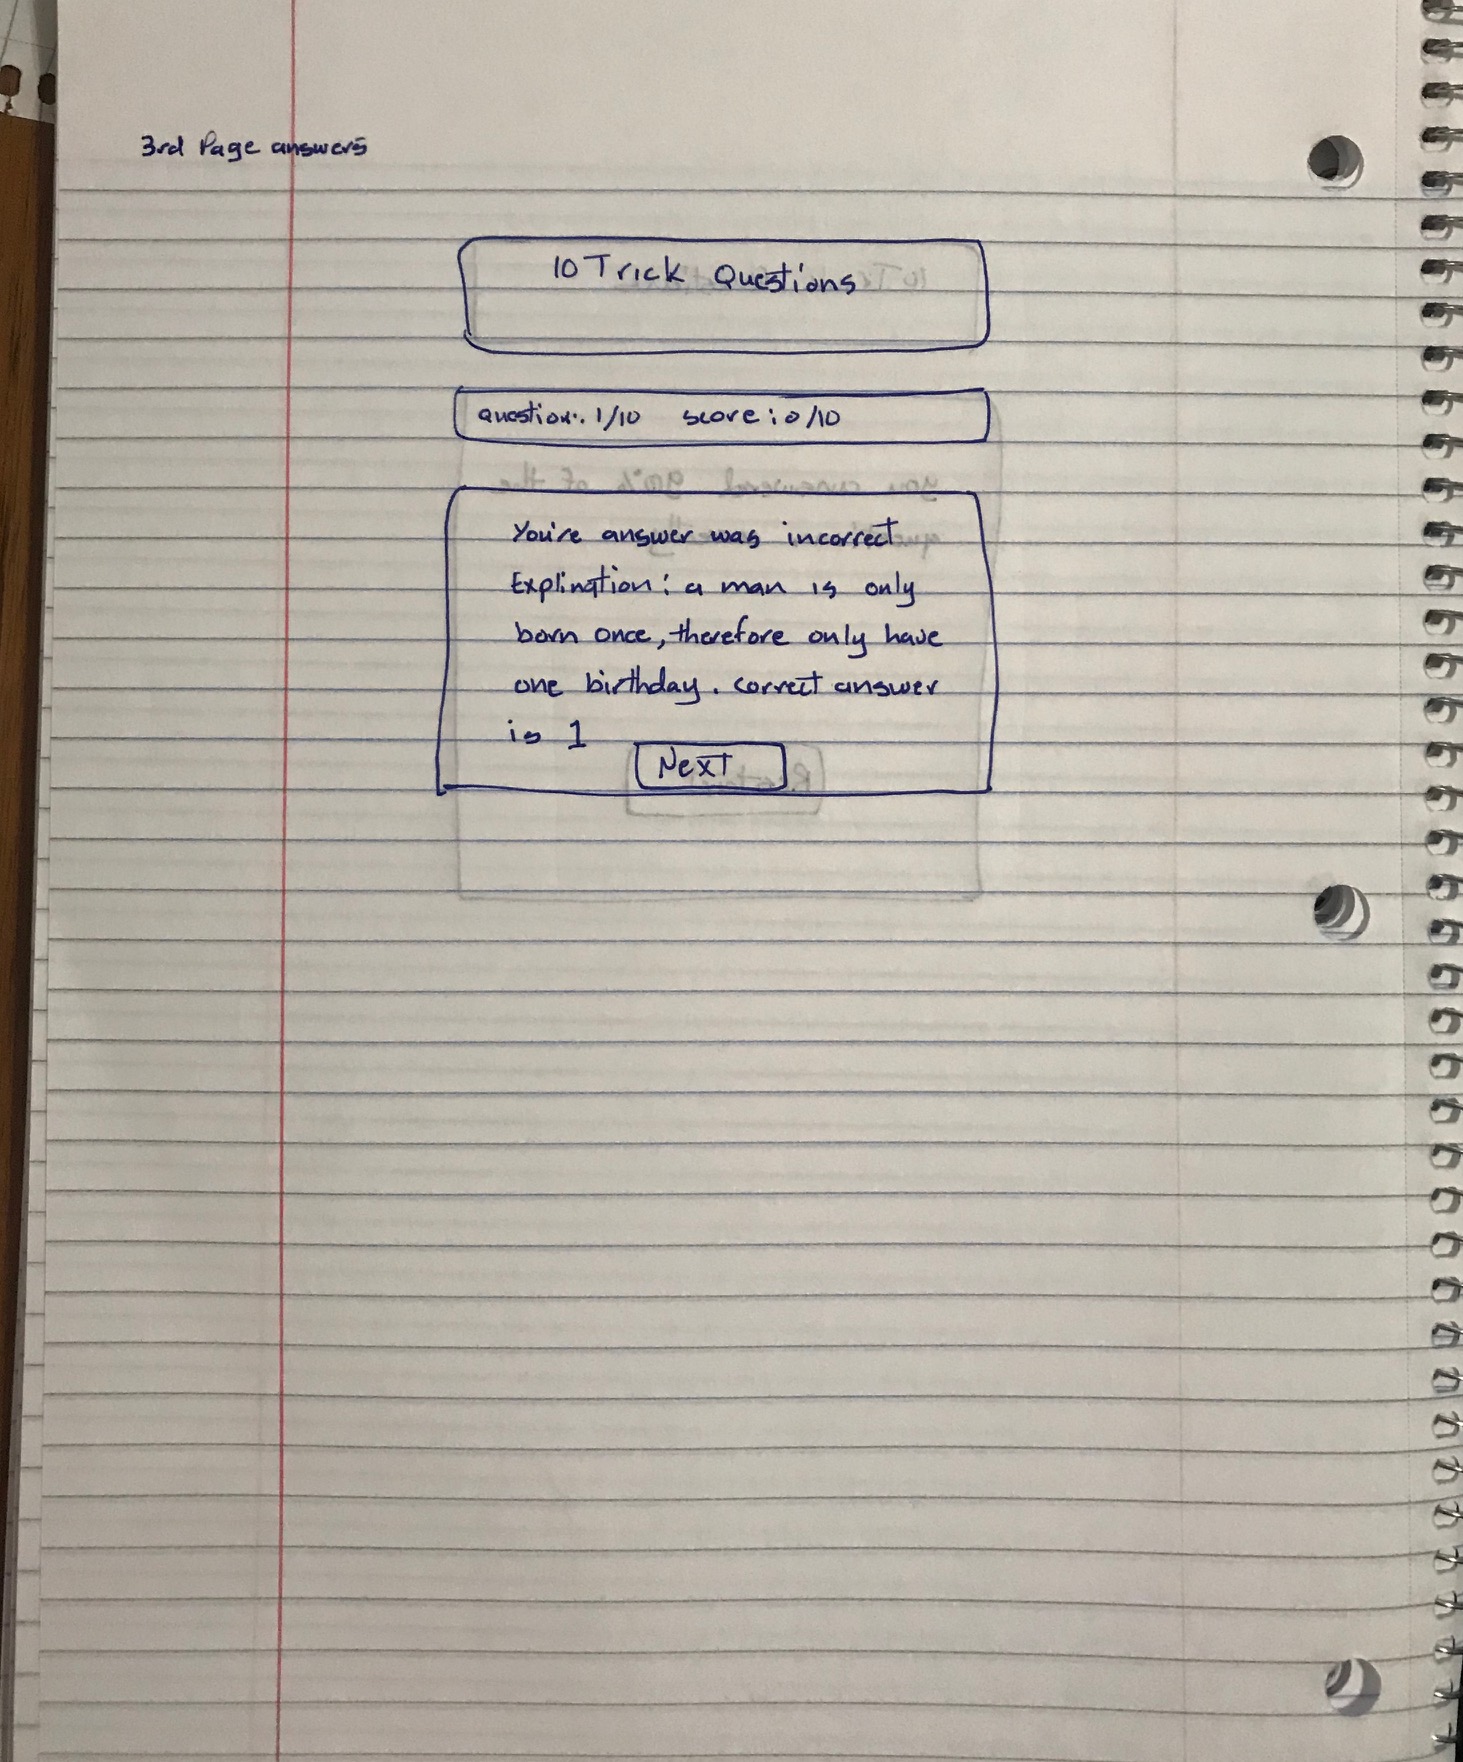 3rd Page answers
10 Trick Questions
question: 1/10 score: 0/10
You're answer was incorrect
Explination: a man is only
born once, therefore only have
one birthday. correct answer
is 1
Next